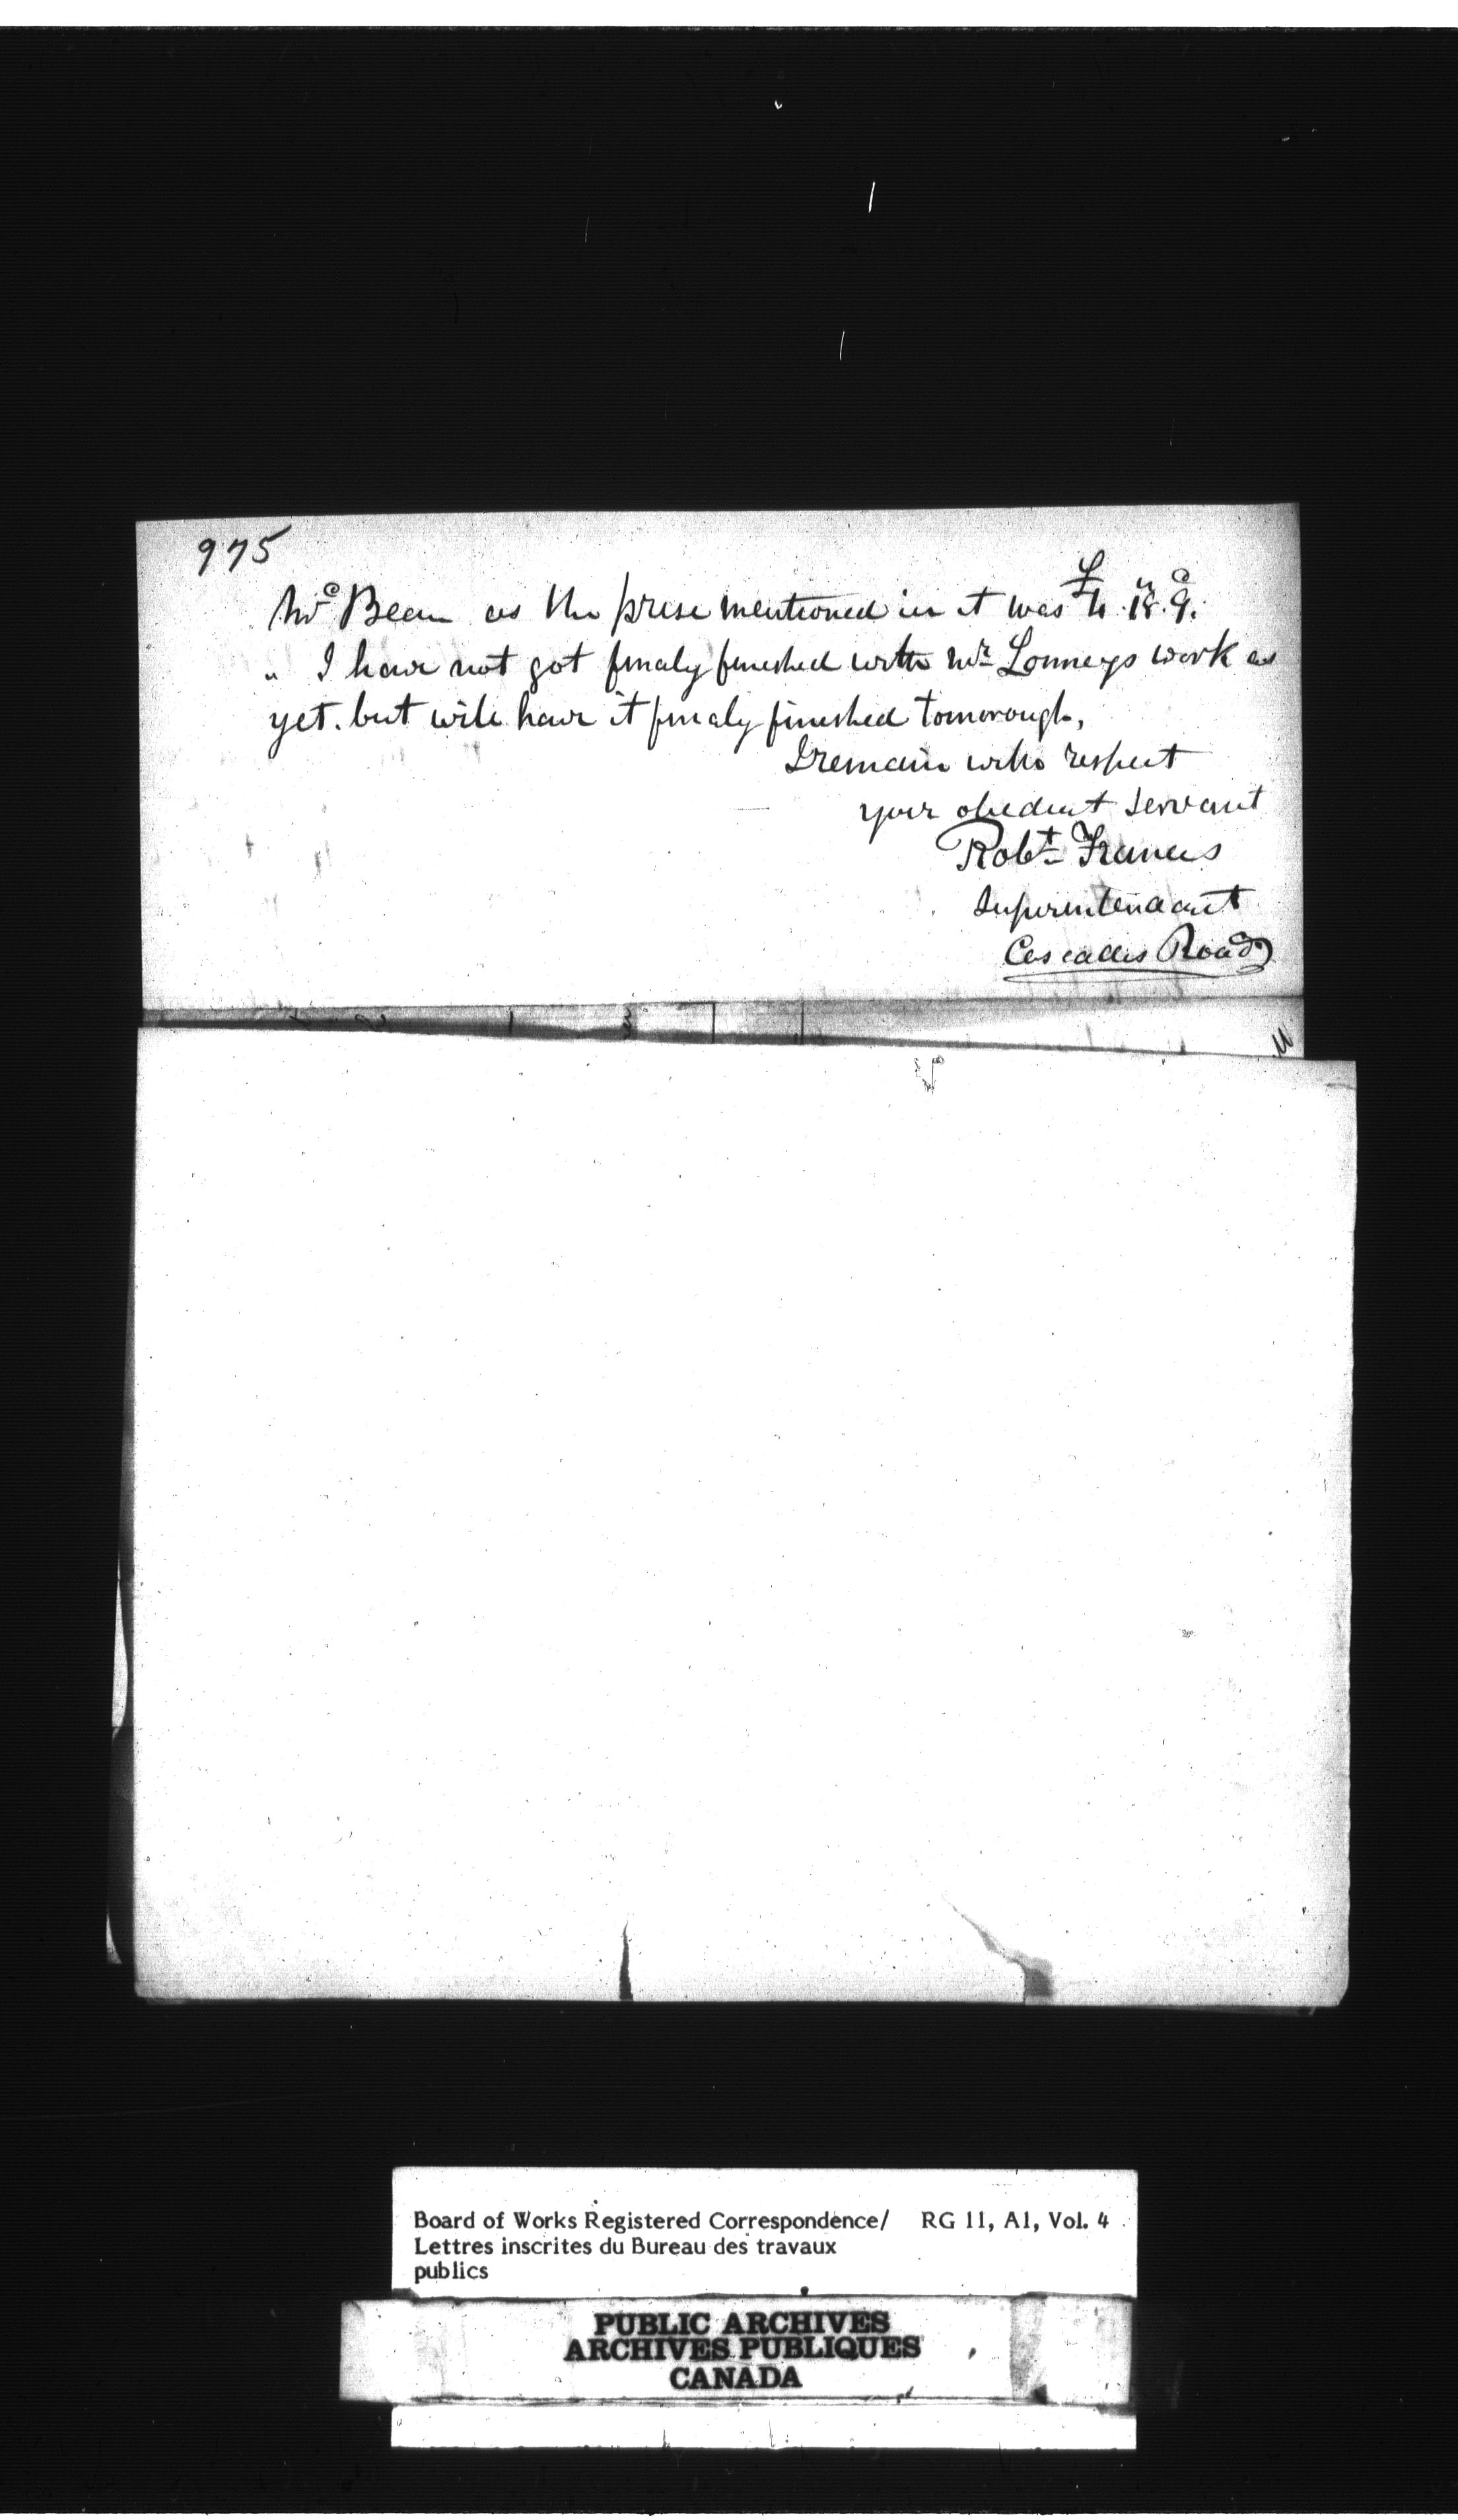 975
Mc Bean as the prise mentioned in it was £4. 18. 9.
" I have not got finaly finished with Mr Lonneys work as
yet. but will have it finaly finished tomorough,
I remain with respect
your obedient servant
Robt Francis
Superintendant
Cascades Road
Board of Works Registered Correspondence/ RG 11, A1, Vol. 4
Lettres inscrites du Bureau des travaux
publics
PUBLIC ARCHIVES
ARCHIVES PUBLIQUES
CANADA